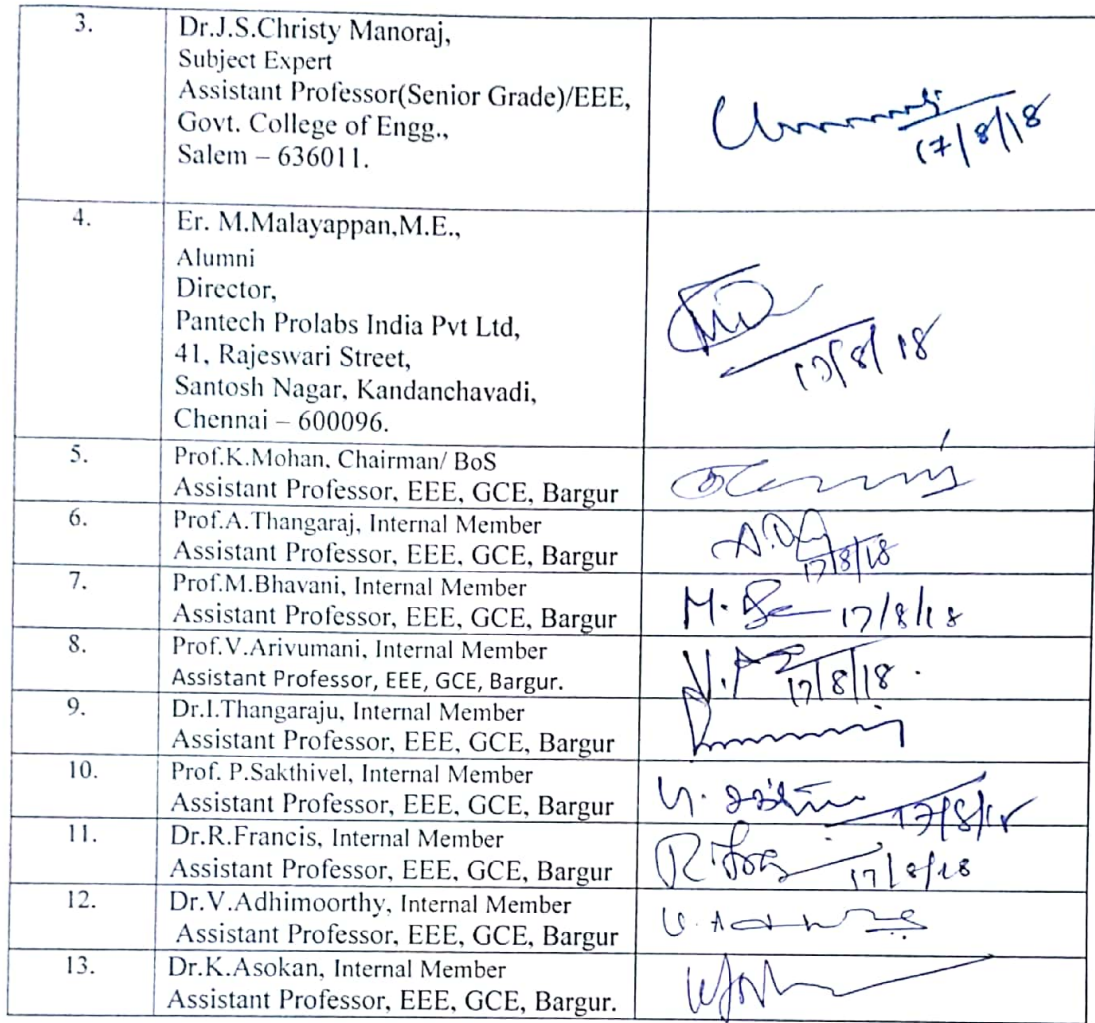 3.
Dr.J.S.Christy Manoraj,
Subject Expert
Assistant Professor(Senior Grade)/EEE,
Govt. College of Engg.,
Salem – 636011.
17/8/18
4.
Er. M.Malayappan,M.E.,
Alumni
Director,
Pantech Prolabs India Pvt Ltd,
41, Rajeswari Street,
Santosh Nagar, Kandanchavadi,
Chennai – 600096.
17/8/18
5.
Prof.K.Mohan, Chairman/ BoS
Assistant Professor, EEE, GCE, Bargur
6.
Prof.A.Thangaraj, Internal Member
Assistant Professor, EEE, GCE, Bargur
17/8/18
7.
Prof.M.Bhavani, Internal Member
Assistant Professor, EEE, GCE, Bargur
17/8/18
8.
Prof.V.Arivumani, Internal Member
Assistant Professor, EEE, GCE, Bargur.
17/8/18.
9.
Dr.I.Thangaraju, Internal Member
Assistant Professor, EEE, GCE, Bargur
10.
Prof. P.Sakthivel, Internal Member
Assistant Professor, EEE, GCE, Bargur
17/8/18
11.
Dr.R.Francis, Internal Member
Assistant Professor, EEE, GCE, Bargur
17/8/18
12.
Dr.V.Adhimoorthy, Internal Member
Assistant Professor, EEE, GCE, Bargur
13.
Dr.K.Asokan, Internal Member
Assistant Professor, EEE, GCE, Bargur.